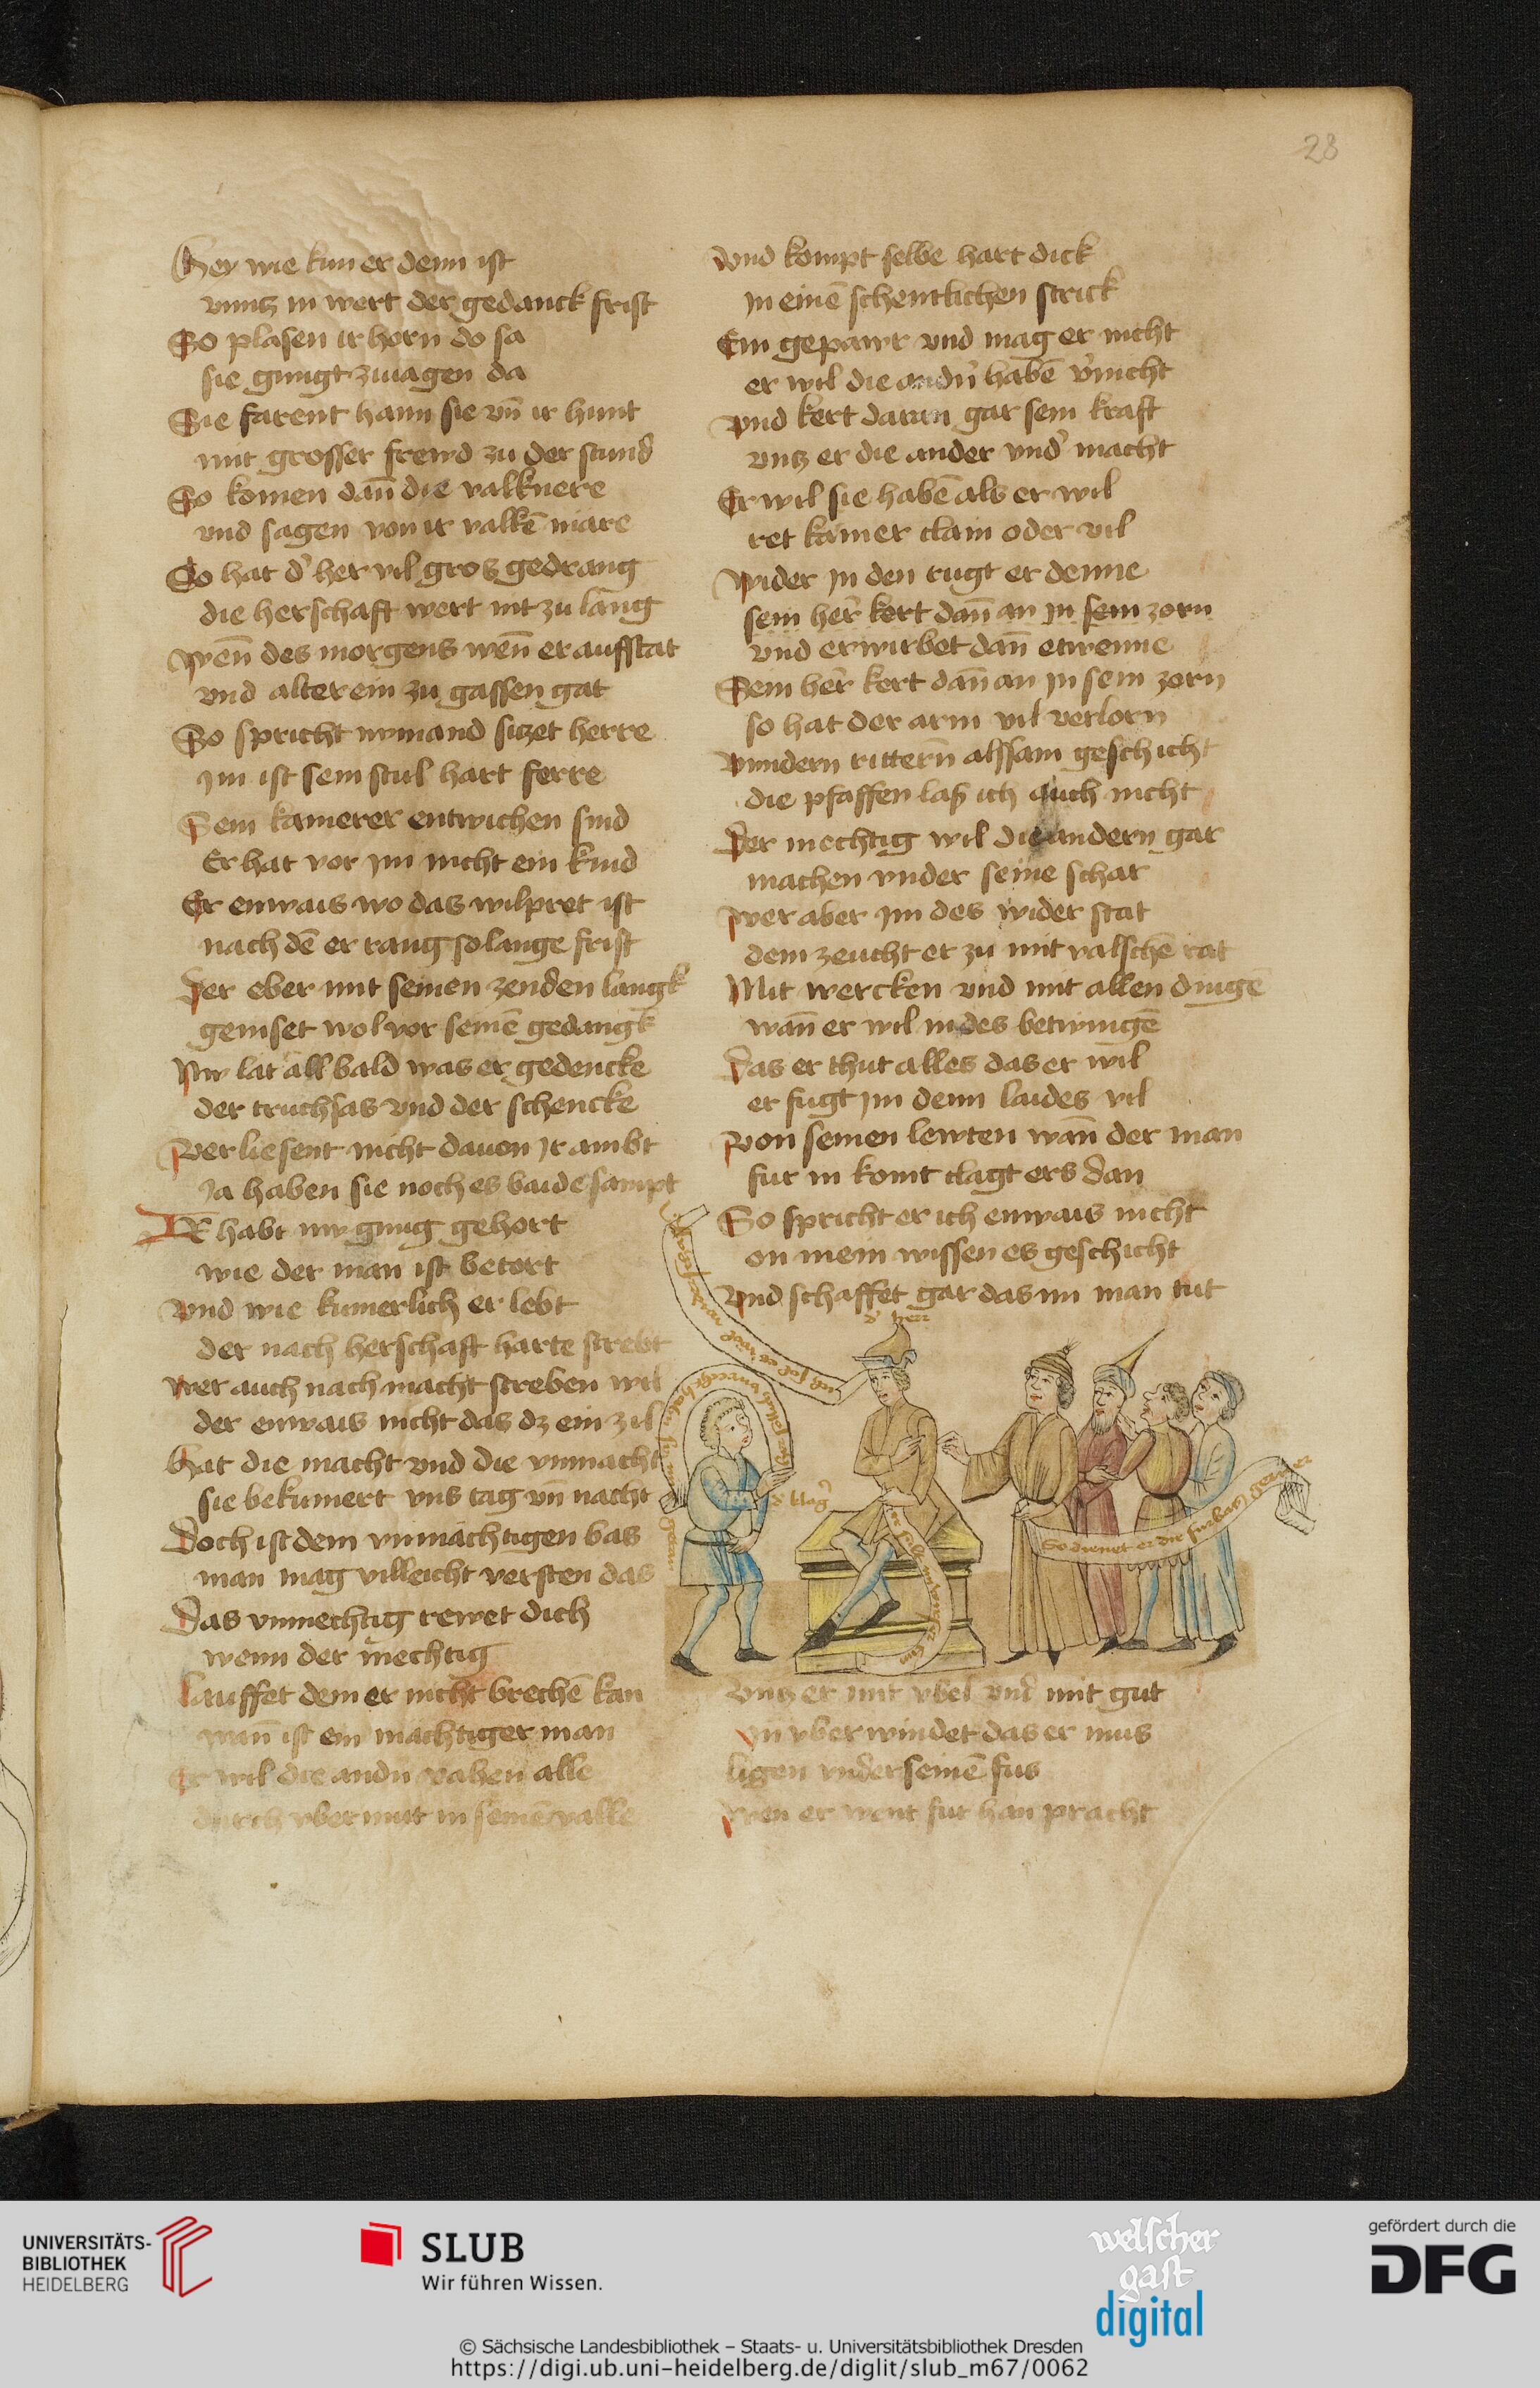 28
Hey wie kun er denn ist
vnntz in wert der gedanck frist
So plasen ir horn do sa
sie gungt zwagen da
Sie farent hann sie vn̄ ir hunt
mit grosser frewd zu der stund
So komen dan̄ die valknere
vnd sagen von ir valkē mare
So hat d' her vil gros gedrang
die herschaft wert nit zu lang
Wen̄ des morgens wen̄ er aufstat
vnd alterein zu gassen gat
So spricht nymand sitzet herre
Im ist sein stul hart ferre
Sein kamerer entwichen sind
Er hat vor im nicht ein kind
Er enwais wo das wilpret ist
nach dē er rang so lange frist
Der eber mit seinen zenden langk
geniset wol vor seinē gedangk
Nw lat all bald was er gedencke
der truchsas vnd der schencke
Verliesent nicht dauon Ir ambt
Ia haben sie noch es baide sampt
IR habt nw gnug gehort
wie der man ist betort
Vnd wie kumerlich er lebt
der nach herschaft harte strebt
Wer auch nach macht streben wil
der enwais nicht das dz ein zil
Hat die macht vnd die vnmacht
sie bekumert vns tag vn̄ nacht
Doch ist dem vnmächtigen bas
man mag villeicht versten das
Das vnmechtig rewet dich
wenn der mechtig
lauffet dem er nicht brechē kan
wan̄ ist ein mächtiger man
Er wil die andn vahen alle
durch vbermut in seinē valle
Vnd kompt selbe hart dick
In einē schentlichen strick
Ein gepawr vnd mag er nicht
er wil die andn̄ habē v'nicht
Vnd kert daran gar sein kraft
vntz er die ander vnd' macht
Er wil sie habē als er wil
ret kamer clain oder vil
Wider In den rugt er denne
sein her̄ kert dan̄ an In sein zorn
vnd erwirbet dan̄ etwenne
Sein her̄ kert dan̄ an In sein zorn
so hat der arm vil verlorn
Vnndern rittern̄ alssam geschicht
die pfaffen las ich auch nicht
Der mechtig wil die andern gar
machen vnder seine schar
Wer aber im des wider stat
dem zeucht er zu mit valschē rat
Mit wercken vnd mit allen dingē
wan̄ er wil in des betwingē
Das er thut alles das er wil
er fugt im denn laides vil
Von seinen lewten wan̄ der man
fur in komt clagt ers dan
So spricht er ich enwais nicht
on mein wissen es geschicht
Vnd schaffet gar das im man tut
d' herr
d' klag'
So dienet er dir furbas
Vntz er mit vbel vnd mit gut
In vberwindet das er mus
ligen vnder seinē fus
Wen er went fur han pracht
UNIVERSITÄTS-
BIBLIOTHEK
HEIDELBERG
SLUB
Wir führen Wissen.
welscher
gast
digital
gefördert durch die
DFG
© Sächsische Landesbibliothek – Staats- u. Universitätsbibliothek Dresden
https://digi.ub.uni-heidelberg.de/diglit/slub_m67/0062